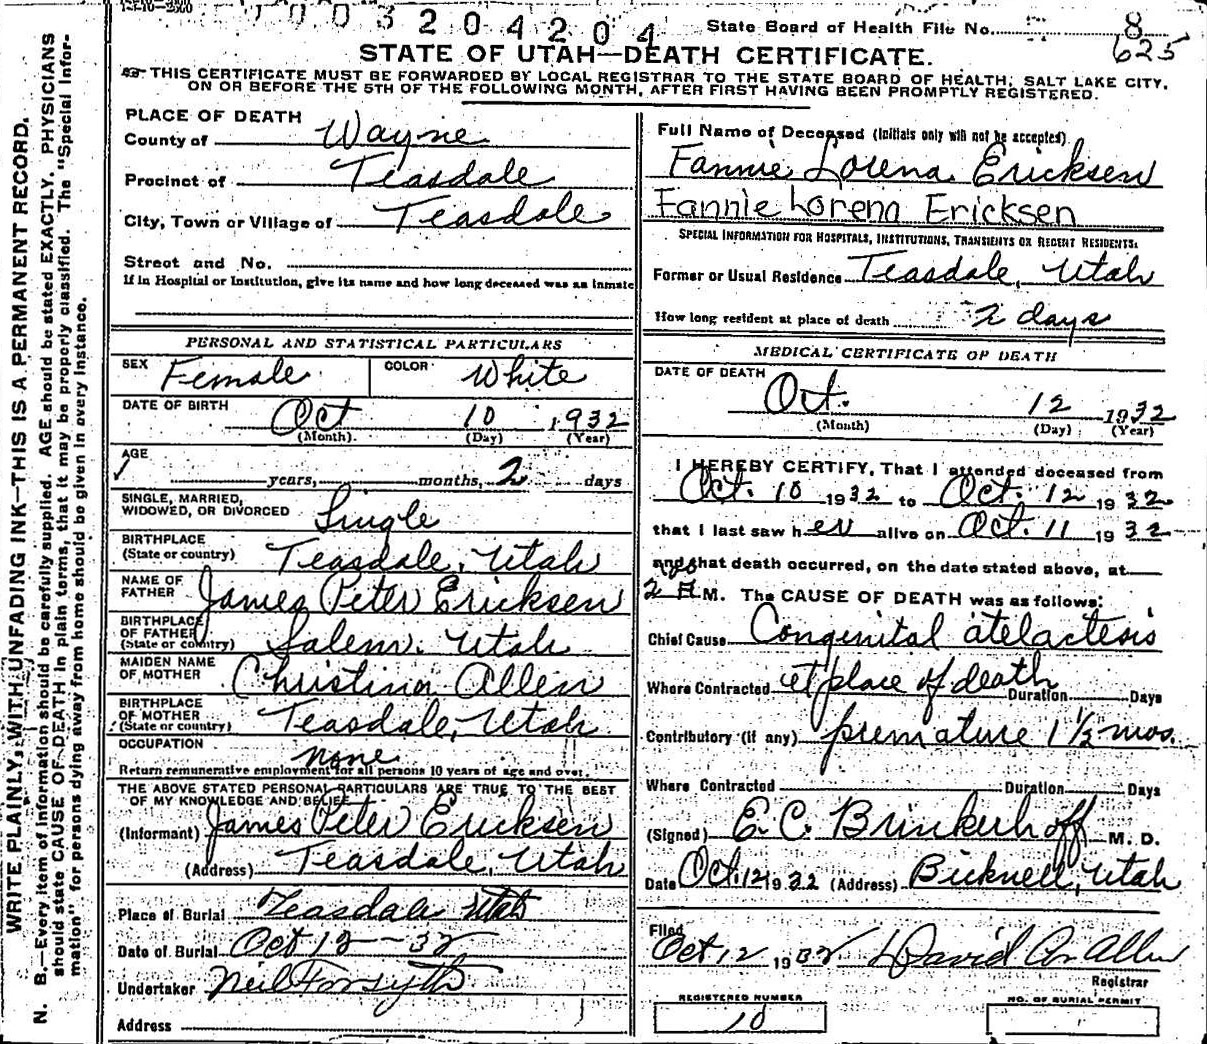 003204204
State Board of Health File No. 8
625
STATE OF UTAH—DEATH CERTIFICATE.
THIS CERTIFICATE MUST BE FORWARDED BY LOCAL REGISTRAR TO THE STATE BOARD OF HEALTH, SALT LAKE CITY,
ON OR BEFORE THE 5TH OF THE FOLLOWING MONTH, AFTER FIRST HAVING BEEN PROMPTLY REGISTERED.
WRITE PLAINLY, WITH UNFADING INK—THIS IS A PERMANENT RECORD.
N. B.—Every item of information should be carefully supplied. AGE should be stated EXACTLY. PHYSICIANS
should state CAUSE OF DEATH in plain terms, that it may be properly classified. The "Special Infor-
mation" for persons dying away from home should be given in every instance.
PLACE OF DEATH
County of Wayne
Precinct of Teasdale
City, Town or Village of Teasdale
Street and No.
If in Hospital or Institution, give its name and how long deceased was an inmate
PERSONAL AND STATISTICAL PARTICULARS
SEX Female COLOR White
DATE OF BIRTH Oct 10 1932
(Month) (Day) (Year)
AGE
years, months, 2 days
SINGLE, MARRIED,
WIDOWED, OR DIVORCED Single
BIRTHPLACE
(State or country) Teasdale, Utah
NAME OF
FATHER James Peter Ericksen
BIRTHPLACE
OF FATHER
(State or country) Salem, Utah
MAIDEN NAME
OF MOTHER Christina Allen
BIRTHPLACE
OF MOTHER
(State or country) Teasdale, Utah
OCCUPATION none
Return remunerative employment for all persons 10 years of age and over.
THE ABOVE STATED PERSONAL PARTICULARS ARE TRUE TO THE BEST
OF MY KNOWLEDGE AND BELIEF
(Informant) James Peter Ericksen
(Address) Teasdale, Utah
Place of Burial Teasdale Utah
Date of Burial Oct 12—32
Undertaker Neil Forsyth
Address
Full Name of Deceased (Initials only will not be accepted)
Fannie Lorena Ericksen
Fannie Lorena Ericksen
SPECIAL INFORMATION FOR HOSPITALS, INSTITUTIONS, TRANSIENTS OR RECENT RESIDENTS.
Former or Usual Residence Teasdale, Utah
How long resident at place of death 2 days
MEDICAL CERTIFICATE OF DEATH
DATE OF DEATH
Oct. 12 1932
(Month) (Day) (Year)
I HEREBY CERTIFY, That I attended deceased from
Oct. 10 1932 to Oct. 12 1932
that I last saw her alive on Oct. 11 1932
and that death occurred, on the date stated above, at
2 A M. The CAUSE OF DEATH was as follows:
Chief Cause Congenital atelactesis
Where Contracted at place of death Duration Days
Contributory (if any) premature 1 1/2 mos.
Where Contracted Duration Days
(Signed) E. C. Brinkerhoff M. D.
Date Oct. 12 1932 (Address) Bicknell, Utah
Filed
Oct 12 1932 David A. Allen
Registrar
REGISTERED NUMBER
10
NO. OF BURIAL PERMIT